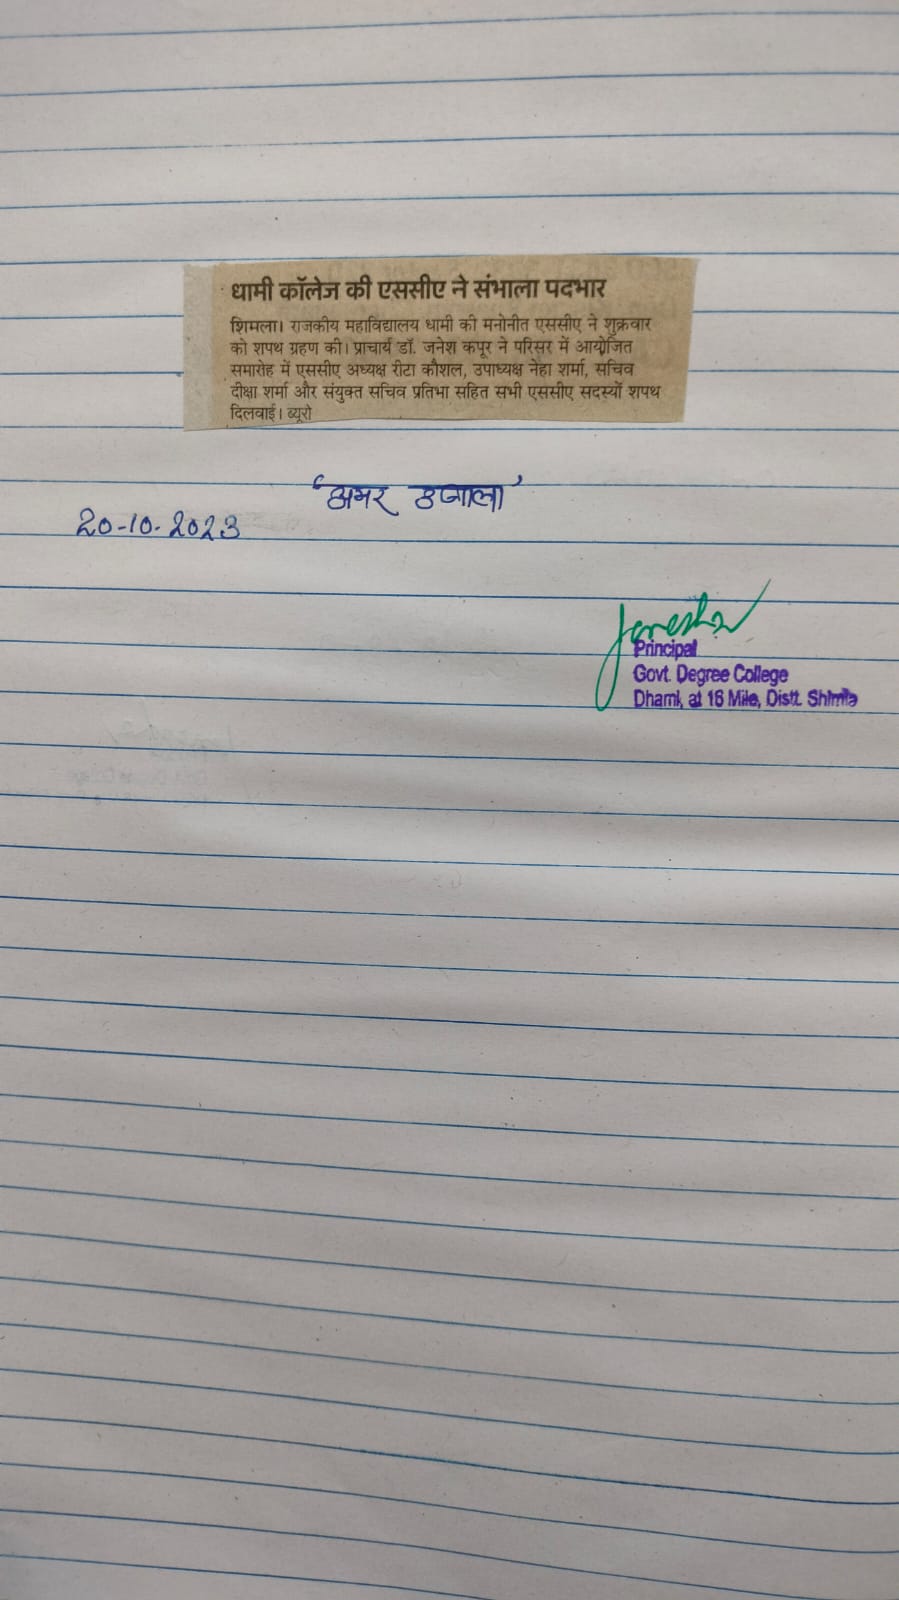 धामी कॉलेज की एससीए ने संभाला पदभार
शिमला। राजकीय महाविद्यालय धामी की मनोनीत एससीए ने शुक्रवार
को शपथ ग्रहण की। प्राचार्य डॉ. जनेश कपूर ने परिसर में आयोजित
समारोह में एससीए अध्यक्ष रीटा कौशल, उपाध्यक्ष नेहा शर्मा, सचिव
दीक्षा शर्मा और संयुक्त सचिव प्रतिभा सहित सभी एससीए सदस्यों शपथ
दिलवाई। ब्यूरो
'अमर उजाला'
20-10-2023
Principal
Govt. Degree College
Dhami, at 16 Mile, Distt. Shimla